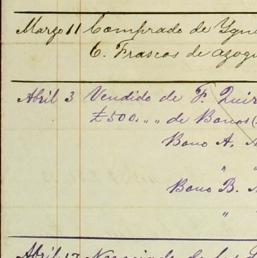 Março 11 Comprado de Ygn
6. Frascos de azogu
Abril 3 Vendido de P. Quir
£500. „ „ de Bonos (
Bono A. N
„ „
Bono B. N
„
Abril 17